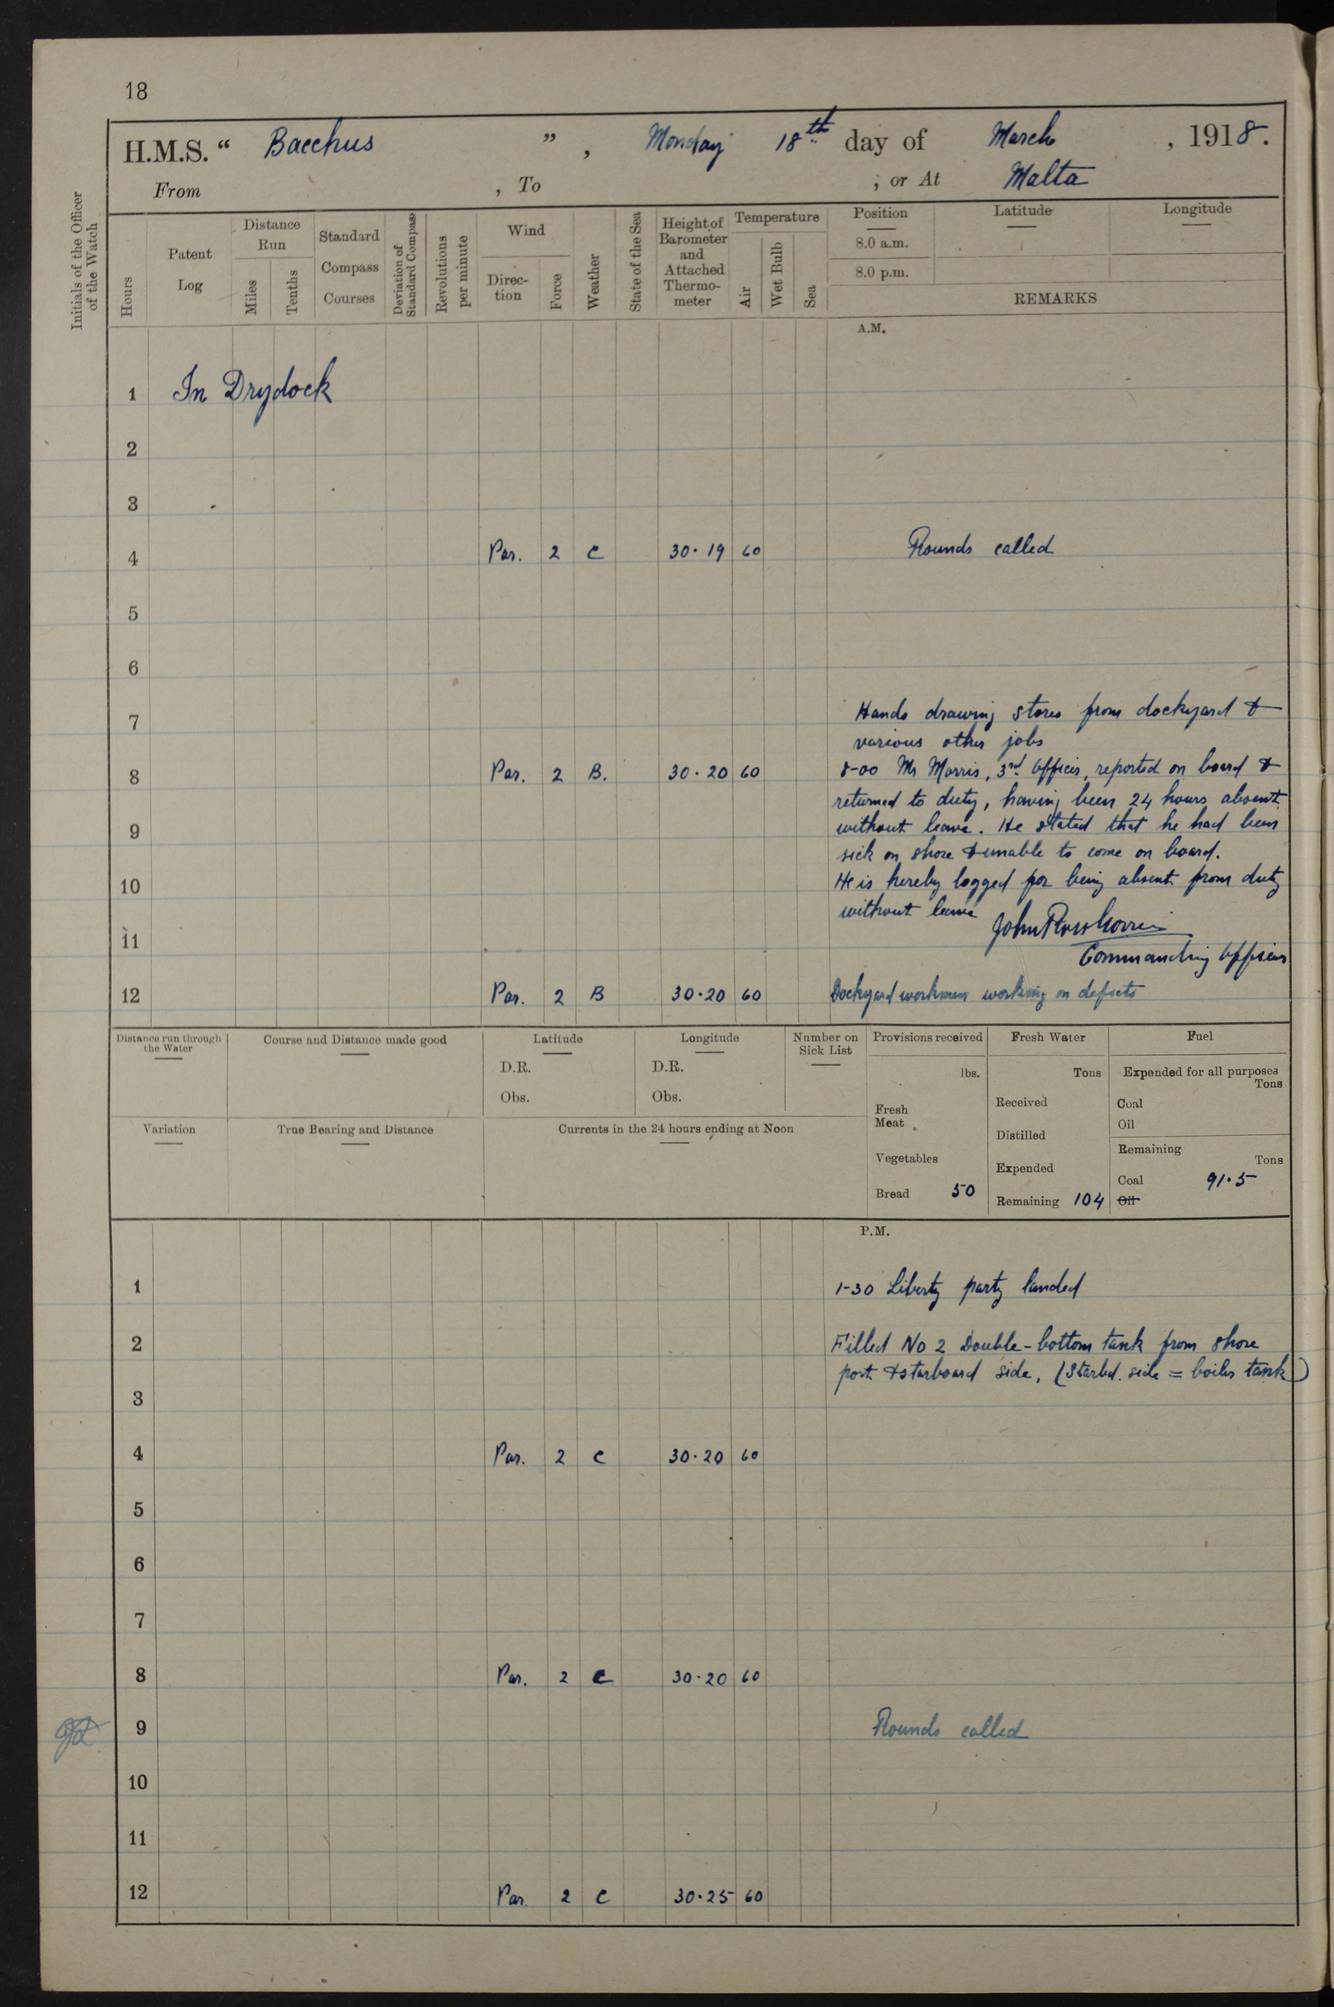 18
H.M.S. “ Bacchus ” , Monday 18th day of March , 1918.
From , To , or At Malta
Initials of the Officer of the Watch
Hours
Patent Log
Distance Run
Miles
Tenths
Standard Compass Courses
Deviation of Standard Compass
Revolutions per minute
Wind
Direc-tion
Force
Weather
State of the Sea
Height of Barometer and Attached Thermo-meter
Temperature
Air
Wet Bulb
Sea
Position Latitude Longitude
8.0 a.m.
8.0 p.m.
REMARKS
A.M.
1 In Drydock
2
3
4 Par. 2 C 30.19 60 Rounds called
5
6
7 Hands drawing stores from dockyard &
various other jobs
8 Par. 2 B. 30.20 60 8-00 Mr Morris, 3rd Officer, reported on board &
returned to duty, having been 24 hours absent
9 without leave. He stated that he had been
sick on shore & unable to come on board.
10 He is hereby logged for being absent from duty
without leave
11
Commanding Officer
12 Par. 2 B 30.20 60 Dockyard workmen working on defects
Distance run through the Water
Course and Distance made good
Latitude
D.R.
Obs.
Longitude
D.R.
Obs.
Number on Sick List
Provisions received
lbs.
Fresh Meat
Vegetables
Bread 50
Fresh Water
Tons
Received
Distilled
Expended
Remaining 104
Fuel
Expended for all purposes
Tons
Coal
Oil
Remaining
Tons
Coal 91.5
Oil
Variation
True Bearing and Distance
Currents in the 24 hours ending at Noon
P.M.
1 1-30 Liberty party landed
2 Filled No 2 Double-bottom tank from shore
port & starboard side, (Starbd. side = boiler tank)
3
4 Par. 2 C 30.20 60
5
6
7
8 Par. 2 C 30.20 60
9 Rounds called
10
11
12 Par. 2 C 30.25 60